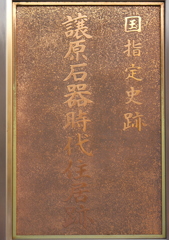 国指定史跡
譲原石器時代住居跡